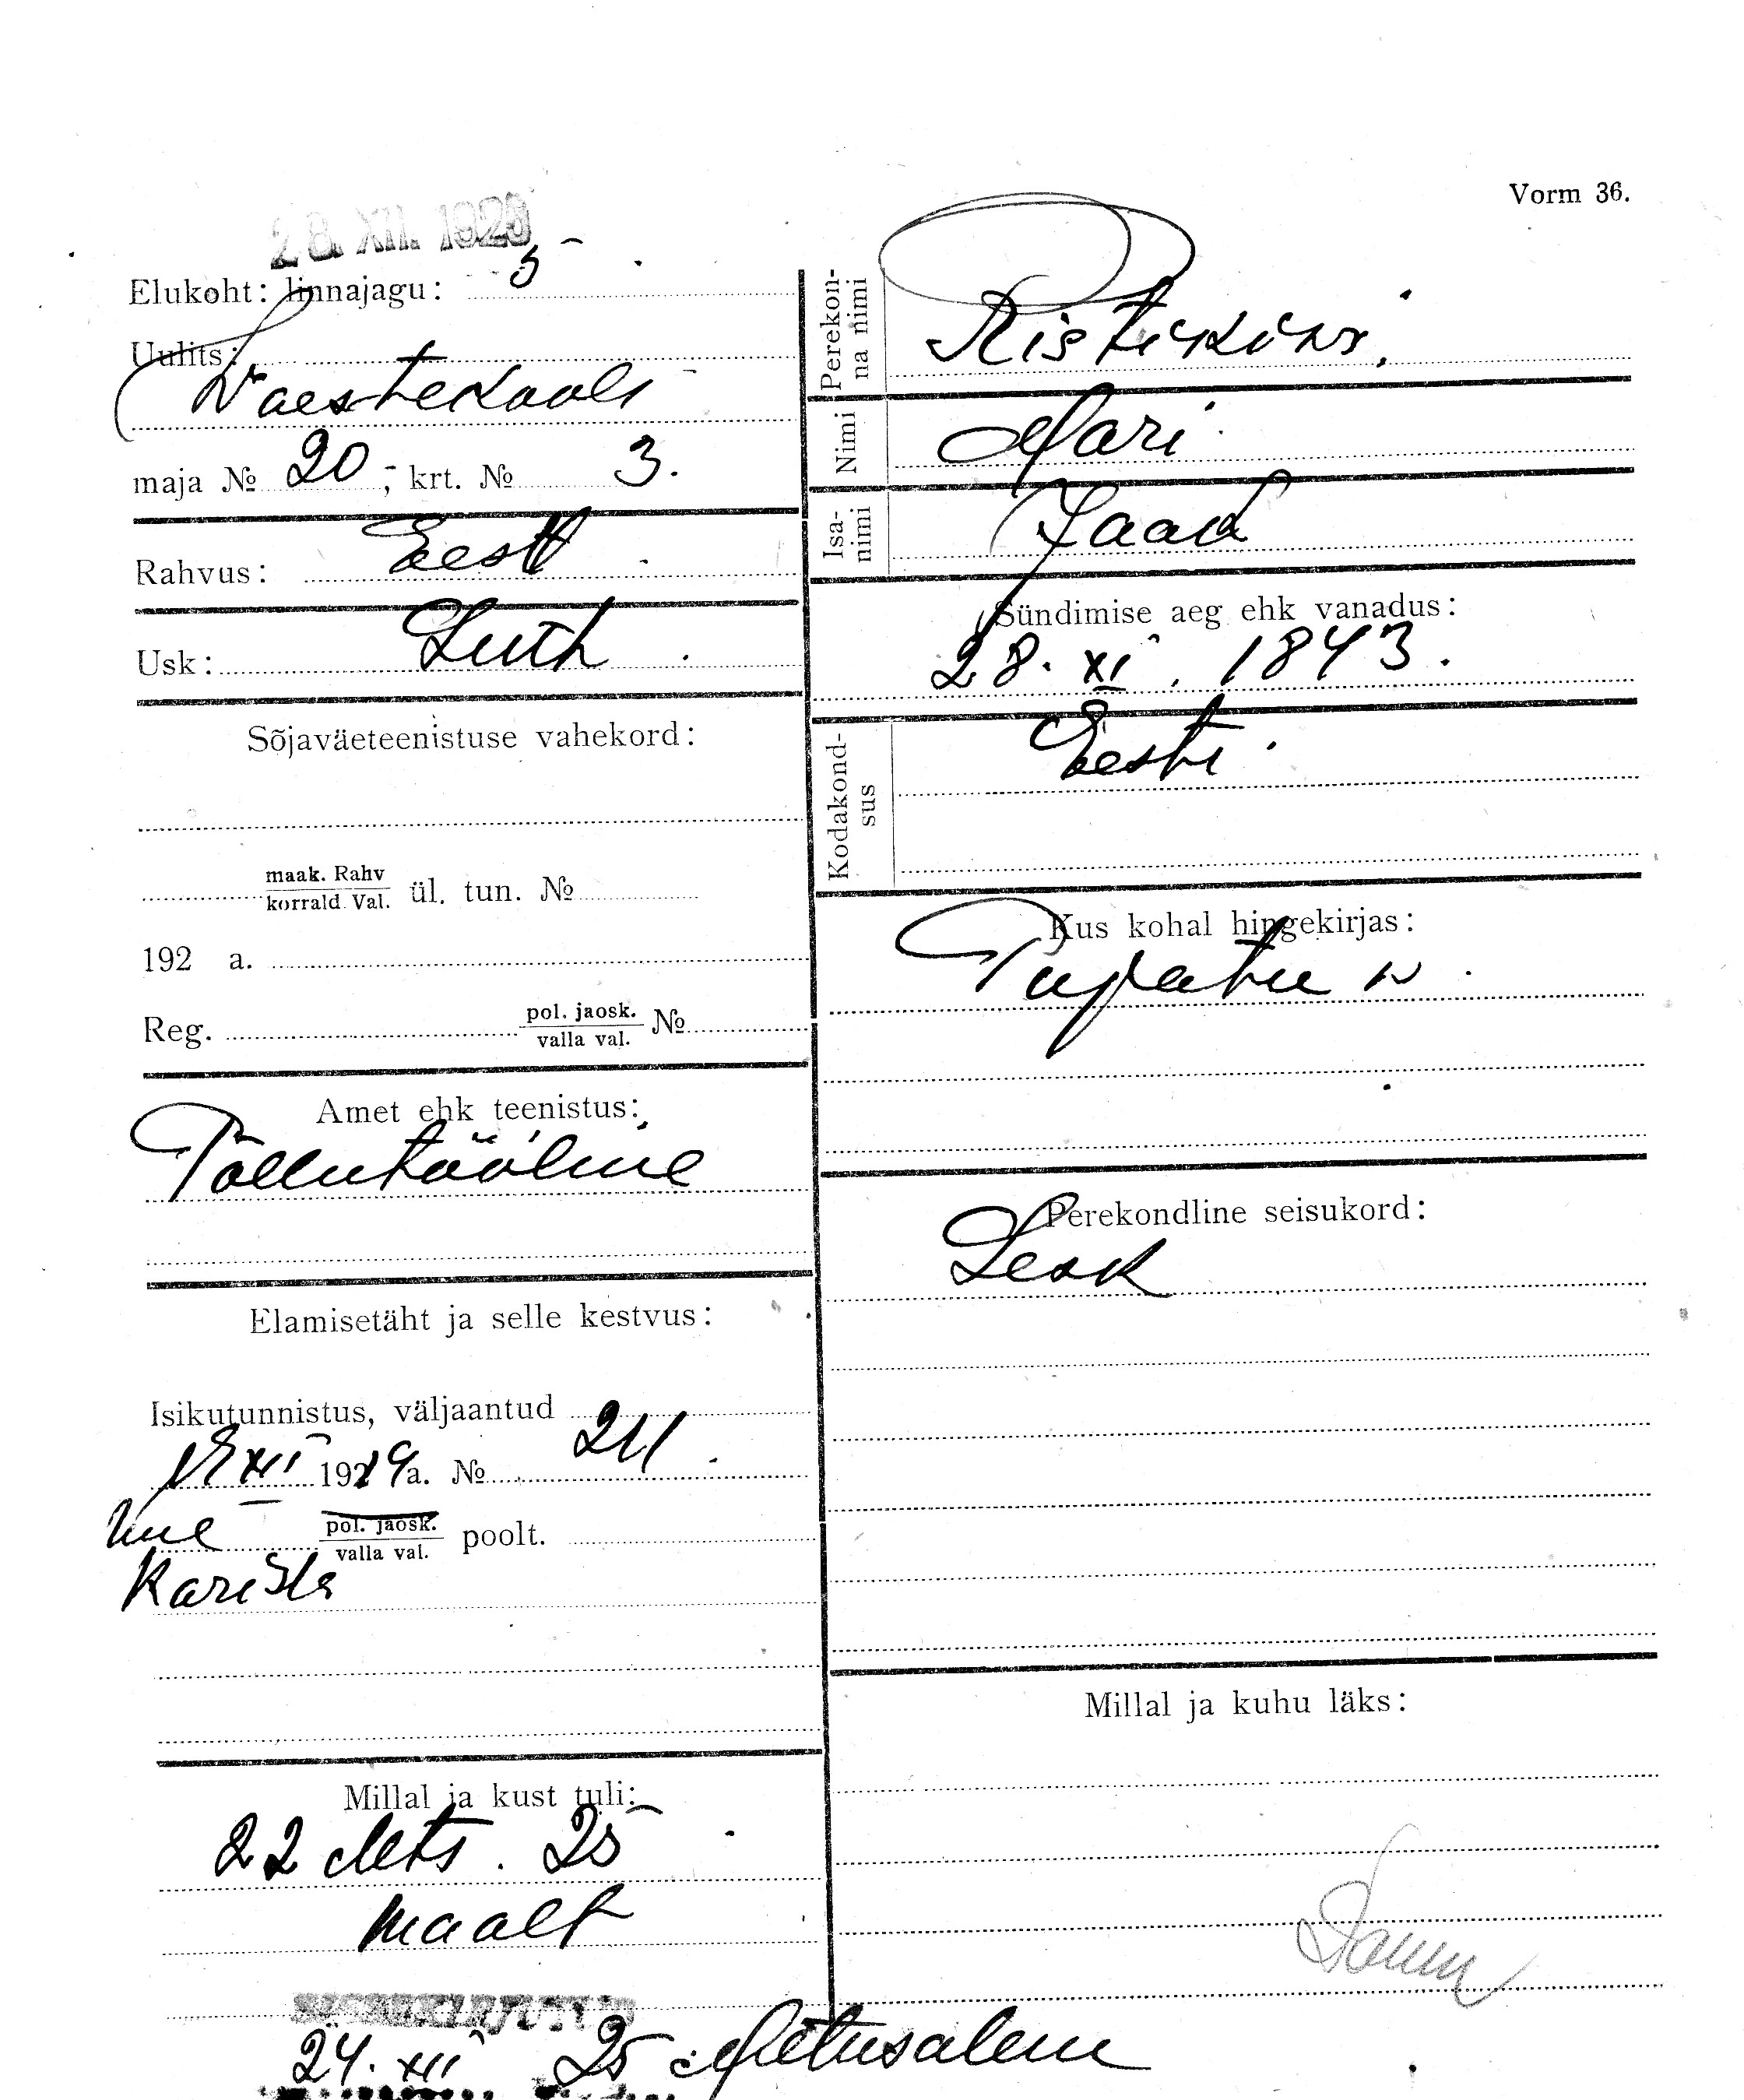 Vorm 36.
28. XII. 1925
Elukoht: linnajagu: 5
Uulits:
Waestekooli
maja № 20; krt. № 3.
Rahvus: Eesti
Usk: Luth
Sõjaväeteenistuse vahekord:
maak. Rahv
korrald. Val. ül. tun. №
192 a.
Reg. pol. jaosk.
valla val. №
Amet ehk teenistus:
Põllutööline
Elamisetäht ja selle kestvus:
Isikutunnistus, väljaantud
XII 1919 a. № 211
pol. jaosk.
valla val. poolt.
Karista
Millal ja kust tuli:
22 Mts. 25
maalt
SISSEKIRJUTATUD
24. XII 25 Metusalem
Perekonna nimi
Ristikivi
Nimi Mari
Isanimi Jaak
Sündimise aeg ehk vanadus:
28. XI. 1843.
Kodakondsus Eesti
Kus kohal hingekirjas:
Perekondline seisukord:
Lesk
Millal ja kuhu läks:
Tamm